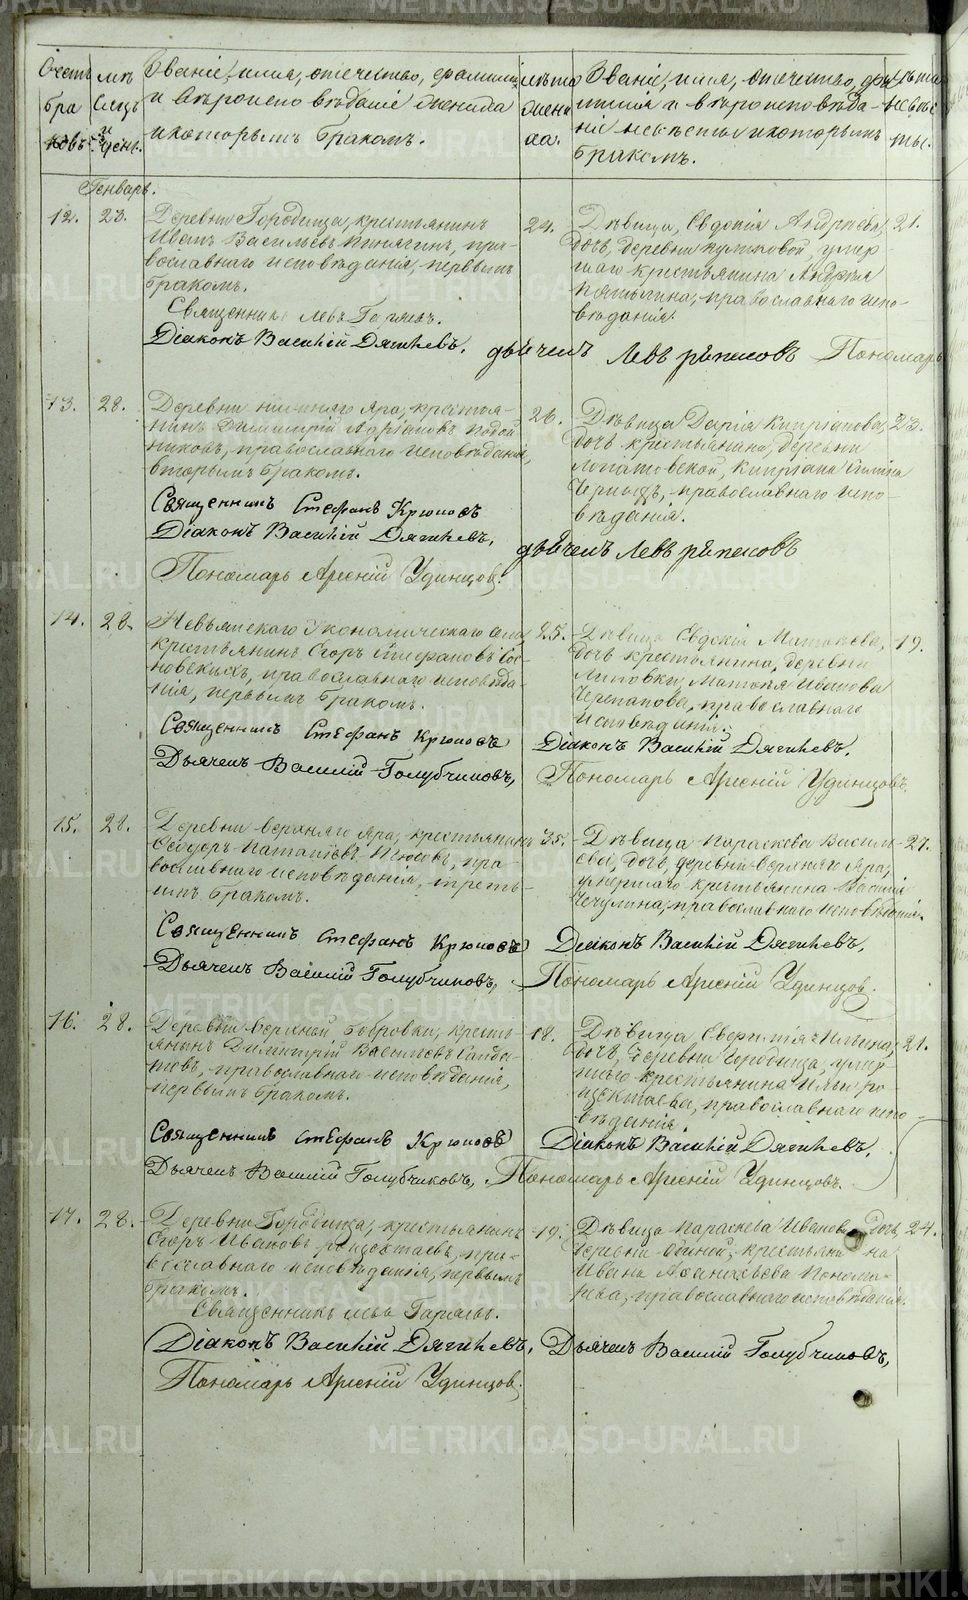 Счетъ браковъ.
Мѣсяцъ и день.
Званіе, имя, отечество, фамилія
и вѣроисповѣданіе жениха
и которымъ бракомъ.
Лѣта жениха.
Званіе, имя, отечество, фа-
милія и вѣроисповѣда-
ніе невѣсты и которымъ
бракомъ.
Лѣта невѣсты.
Генварь.
12. 23.
Деревни Городища, крестьянинъ
Иванъ Васильевъ, пра-
вославнаго исповѣданія, первымъ
бракомъ.
24.
Дѣвица, Евдокія Андреева,
дочь, деревни Куликовой, умер-
шаго крестьянина Андрея
православнаго испо-
вѣданія.
21.
Священникъ Левъ
Діаконъ Василій Дягилевъ.
Дьячекъ Левъ
Пономарь
13. 28.
Деревни нижняго Яра, крестья-
нинъ Димитрій Адріановъ
православнаго исповѣданія,
вторымъ бракомъ.
26.
Дѣвица Дарія Кипріанова,
дочь крестьянина, деревни
Лопатовской, Кипріана
православнаго испо-
вѣданія.
23.
Священникъ Стефанъ Крюковъ
Діаконъ Василій Дягилевъ,
Дьячекъ Левъ
Пономарь Арсеній Удинцовъ.
14. 28.
Невьянскаго Экономическаго села
крестьянинъ Егоръ Стефановъ Сос-
новскихъ, православнаго исповѣда-
нія, первымъ бракомъ.
25.
Дѣвица Евдокія Матвѣева,
дочь крестьянина, деревни
Липовки, Матвѣя Иванова
Черепанова, православнаго
исповѣданія.
19.
Священникъ Стефанъ Крюковъ
Діаконъ Василій Дягилевъ.
Дьячекъ Василій Голубчиковъ,
Пономарь Арсеній Удинцовъ.
15. 28.
Деревни верхняго Яра, крестьянинъ
Ѳеодоръ пра-
вославнаго исповѣданія, треть-
имъ бракомъ.
35.
Дѣвица Параскева Василь-
ева, дочь, деревни верхняго Яра,
умершаго крестьянина Василія
Чечулина, православнаго исповѣданія.
27.
Священникъ Стефанъ Крюковъ
Діаконъ Василій Дягилевъ,
Дьячекъ Василій Голубчиковъ,
Пономарь Арсеній Удинцовъ.
16. 28.
Деревни верхней Бобровки, кресть-
янинъ Димитрій Васильевъ
православнаго исповѣданія,
первымъ бракомъ.
18.
Дѣвица, Евфимія Ильина,
дочь, деревни Городища, умер-
шаго крестьянина Ильи
православнаго испо-
вѣданія.
21.
Священникъ Стефанъ Крюковъ
Діаконъ Василій Дягилевъ,
Дьячекъ Василій Голубчиковъ,
Пономарь Арсеній Удинцовъ.
17. 28.
Деревни Городища, крестьянинъ
Егоръ Ивановъ пра-
вославнаго исповѣданія, первымъ
бракомъ.
19.
Дѣвица Параскева Иванова, дочь,
деревни крестьянина
Ивана Аѳанасьева Понома-
рева, православнаго исповѣданія.
24.
Священникъ Левъ
Діаконъ Василій Дягилевъ,
Дьячекъ Василій Голубчиковъ,
Пономарь Арсеній Удинцовъ.
METRIKI.GASO-URAL.RU